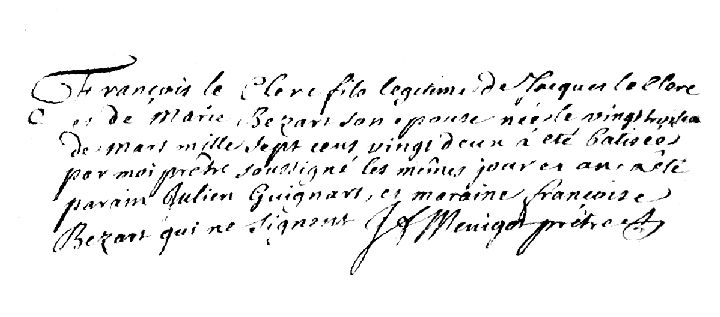 François le Clerc fils legitime de Jacques le Clerc
et de Marie Bezart son epouse née le vingt
de mars mille sept cens vingt deux à été batisée
par moi prêtre soussigné les mêmes jour et an, à été
parain Julien Guignart, et maraine françoise
Bezart qui ne signent Menigot prêtre